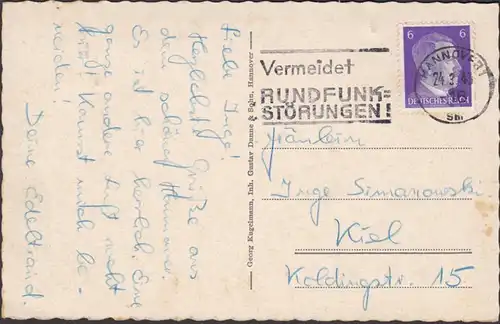 Liebe Inge!
Herzlichst Grüße aus
dem schönen Hannover.
Es ist hier herrlich. Eine
ganze andere Luft weht
hier. Kannst mich be-
neiden!
Deine Edeltraud.
Georg Kugelmann, Inh. Gustav Danne & Sohn, Hannover
Vermeidet
RUNDFUNK=
STÖRUNGEN!
HANNOVER 1
24.3.43
6 6
DEUTSCHES REICH
Fräulein
Inge Simanowski
Kiel
Koldingstr. 15